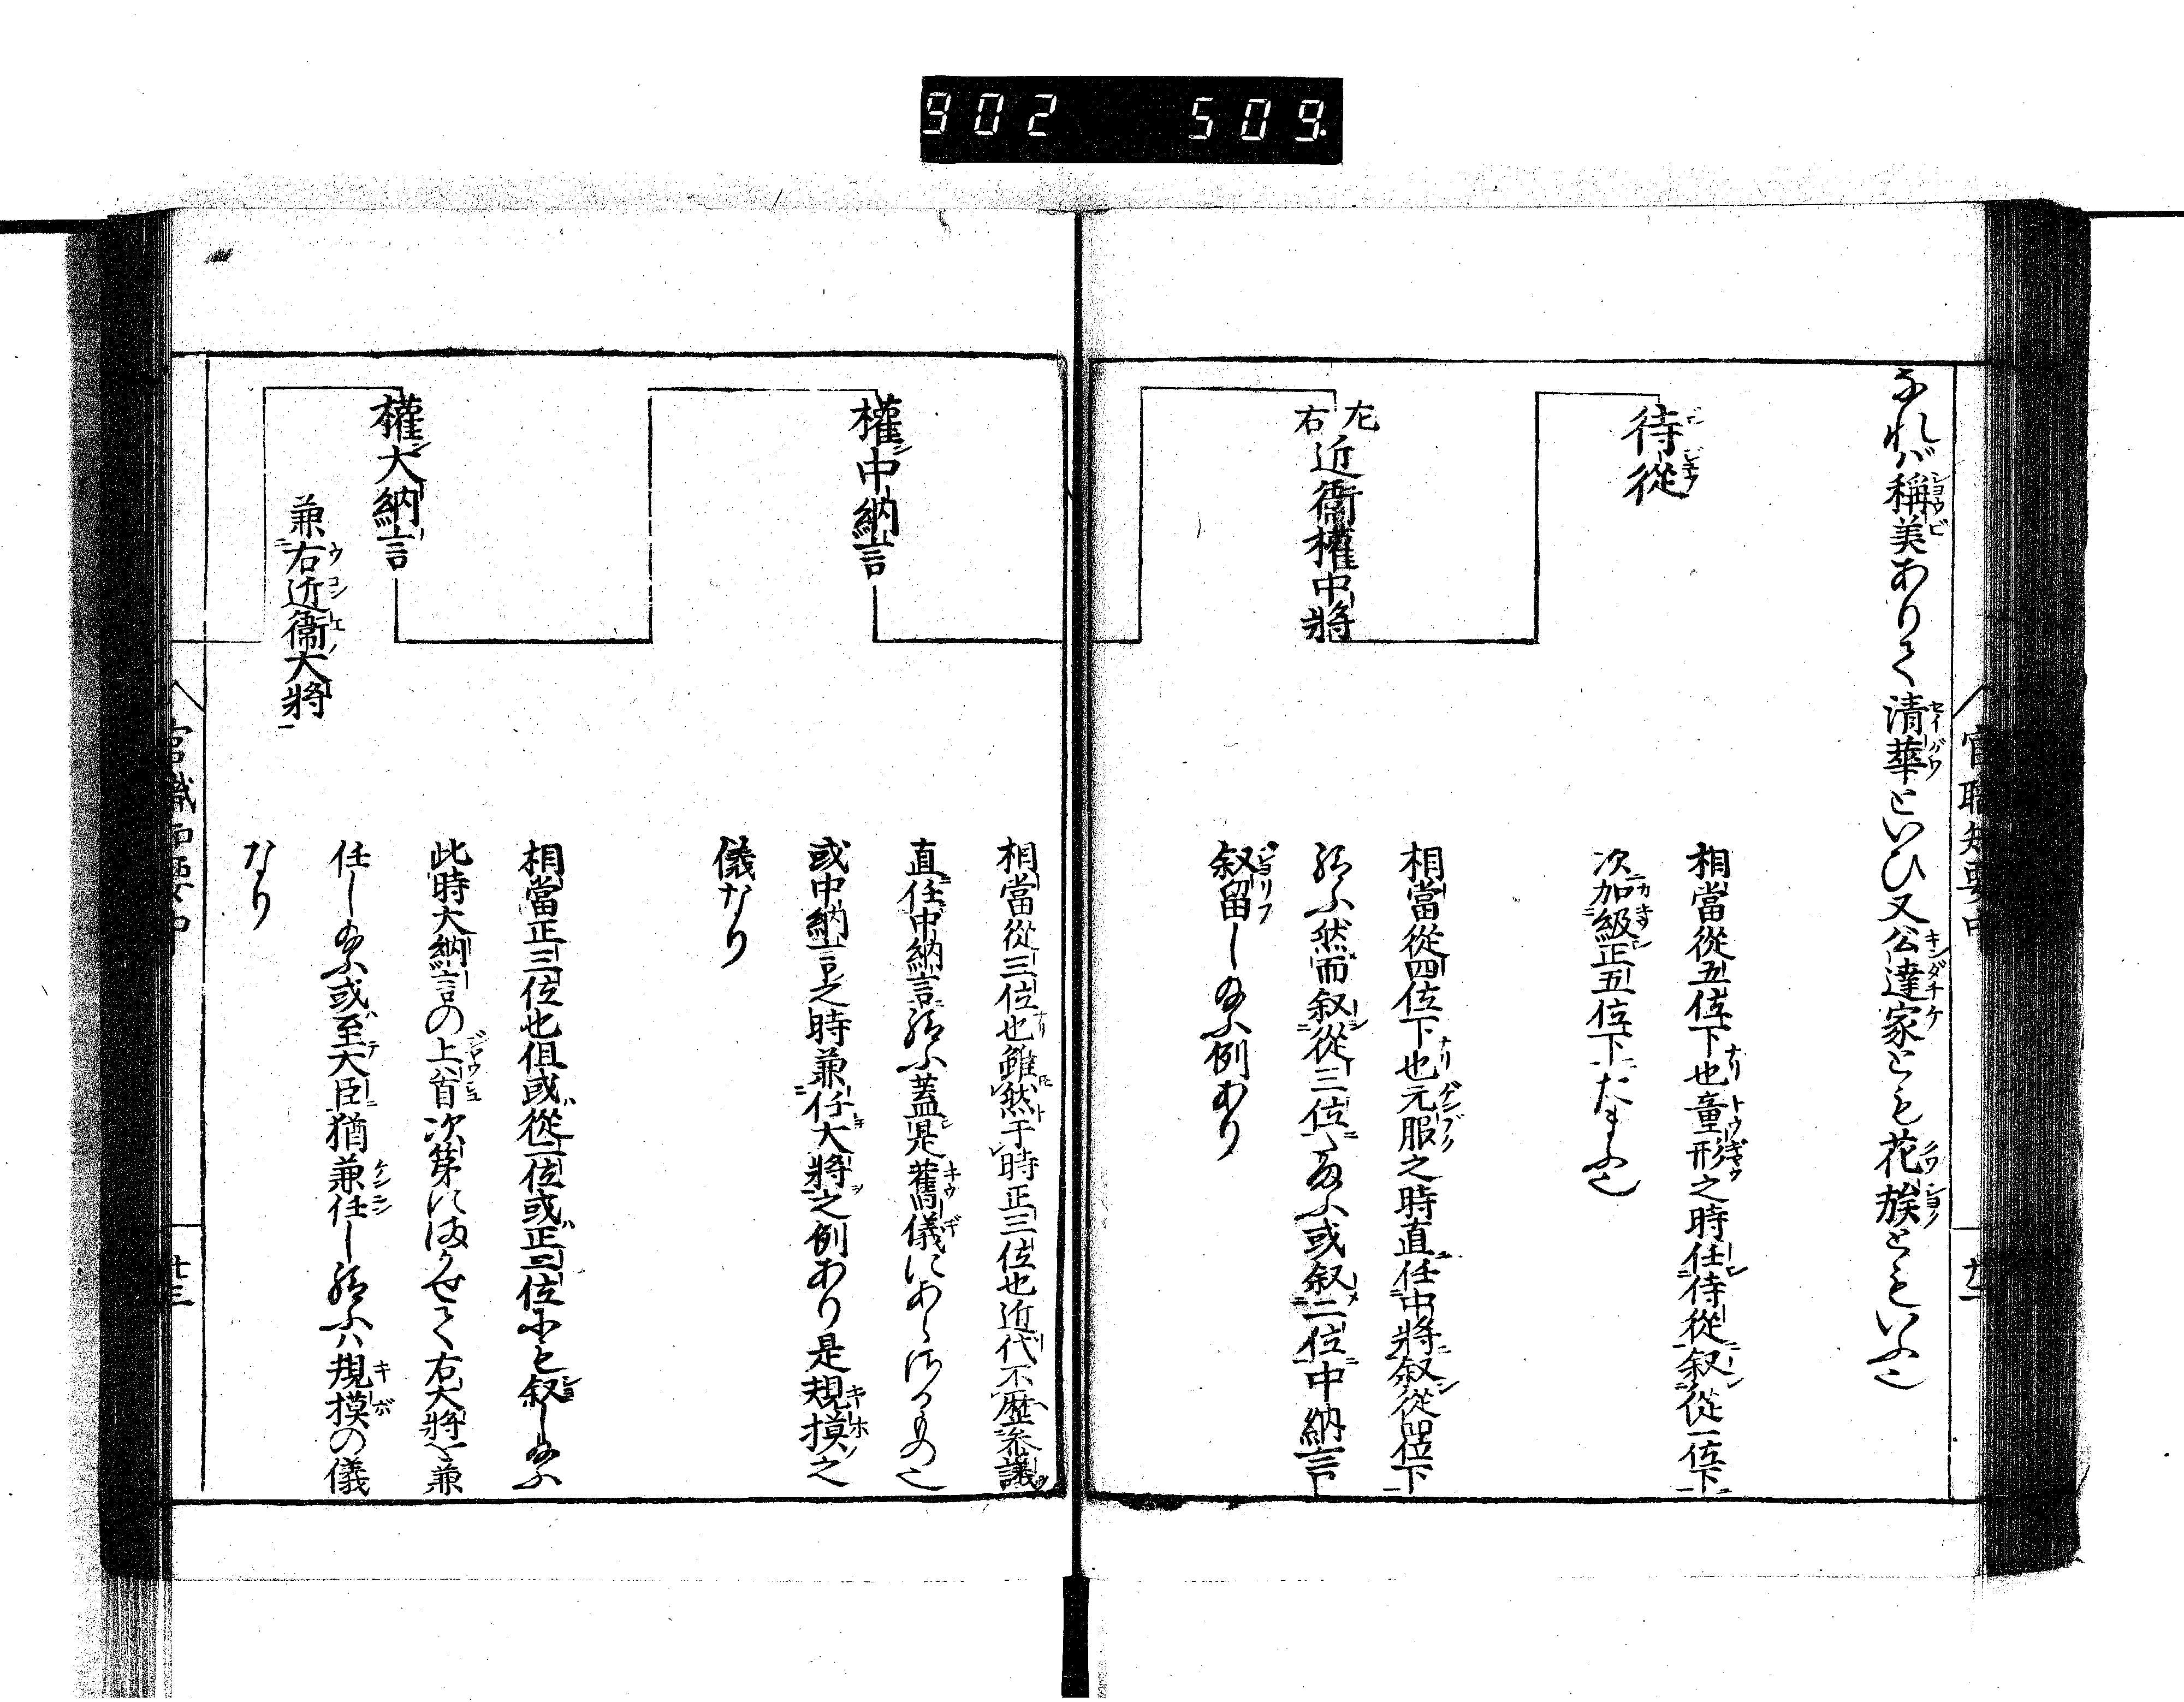 902 509.
官職知要中
廿二
なれバ稱美ありて清華といひ又公達家とも花族ともいふ也
侍從
相當從五位下也童形之時任侍從叙從一位下
次加級正五位下たまふ也
左右近衞權中將
相當從四位下也元服之時直任中將叙從四位下
給ふ然而叙從三位給ふ或叙二位中納言
叙留し給ふ例あり
權中納言
相當從三位也雖然于時正三位也近代不歴參議
直任中納言給ふ蓋是舊儀にあらざるもの也
或中納言之時兼任大將之例あり是規摸之
儀なり
權大納言
兼右近衞大將
相當正三位也但或從二位或正二位にも叙し給ふ
此時大納言の上首次第にまかせて右大將を兼
任し給ふ或至大臣猶兼任し給ふハ規摸の儀
なり
官職知要中
廿三